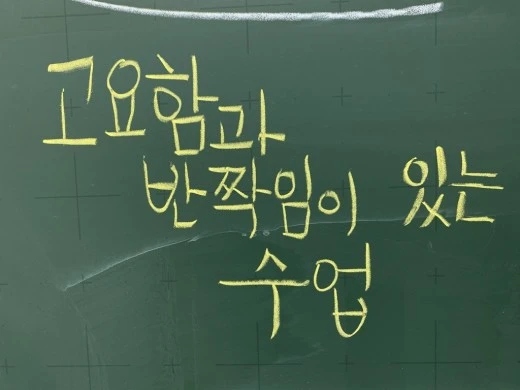 고요함과
반짝임이 있는
수업